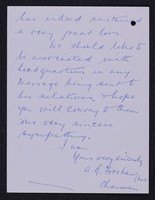 has indeed sustained
a very great loss.
We should like to
be associated with
headquarters in any
message being sent to
his relatives, & hope
you will convey to them
our very sincere
sympathy.
I am
Yours very sincerely
Chairman